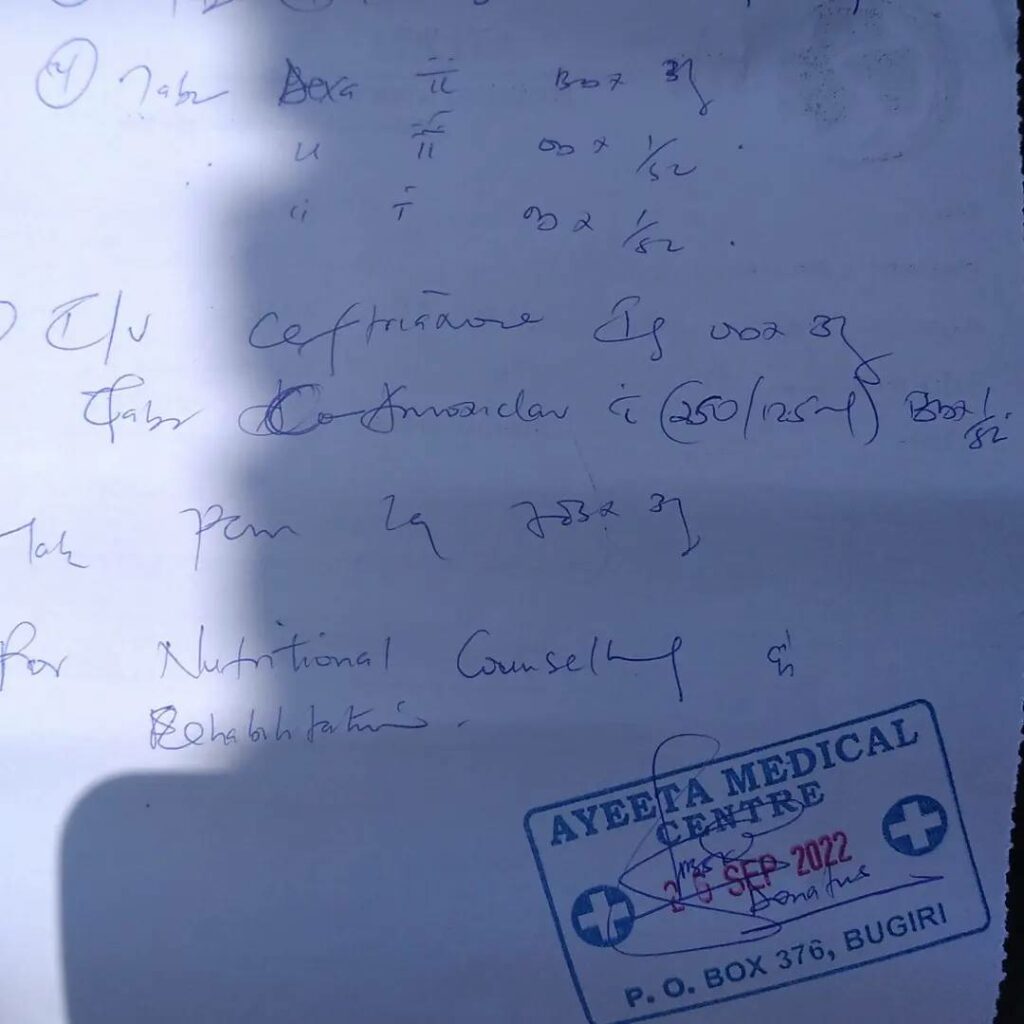 4 Tabs Dexa ii BD x 3/7
" ii OD x 1/52
" i OD x 1/52
I/V Ceftriaxone 1g OD x 3/7
Tabs Co-Amoxiclav i (250/125mg) BD x 1/52
Tab PCM 1g TDS x 3/7
For Nutritional Counselling &
Rehabilitation.
AYEETA MEDICAL
CENTRE
SEP 2022
Donatus
P. O. BOX 376, BUGIRI